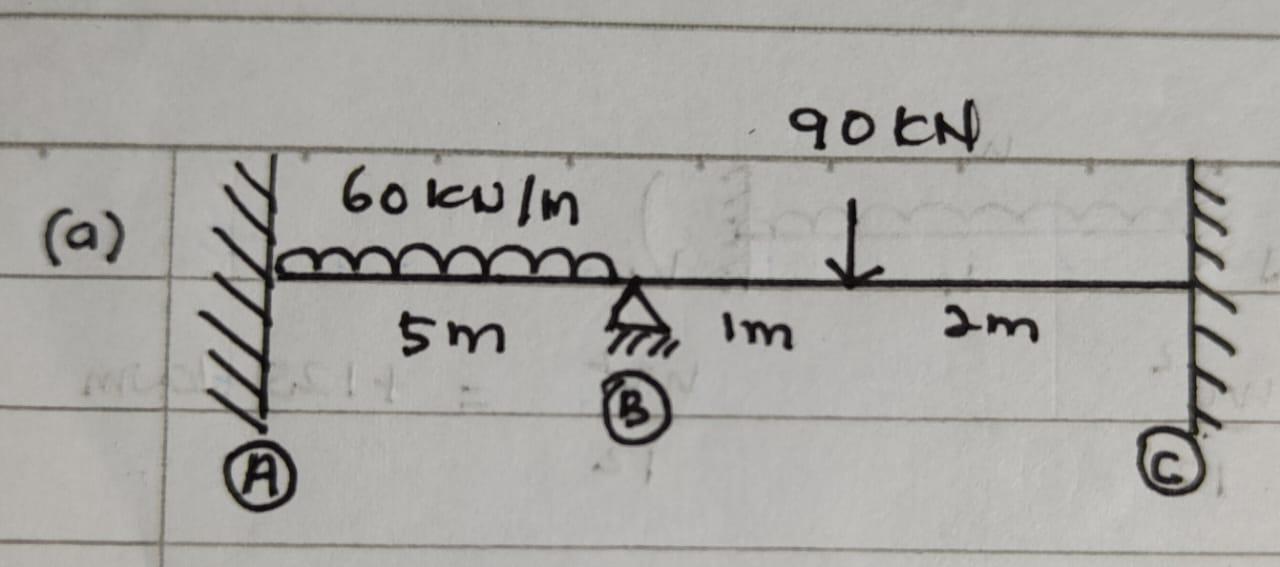 90 KN
(a)
60 KN/m
5m
1m
2m
B
A
C